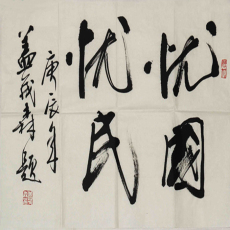 忧国
忧民
庚辰年
孟茂森题